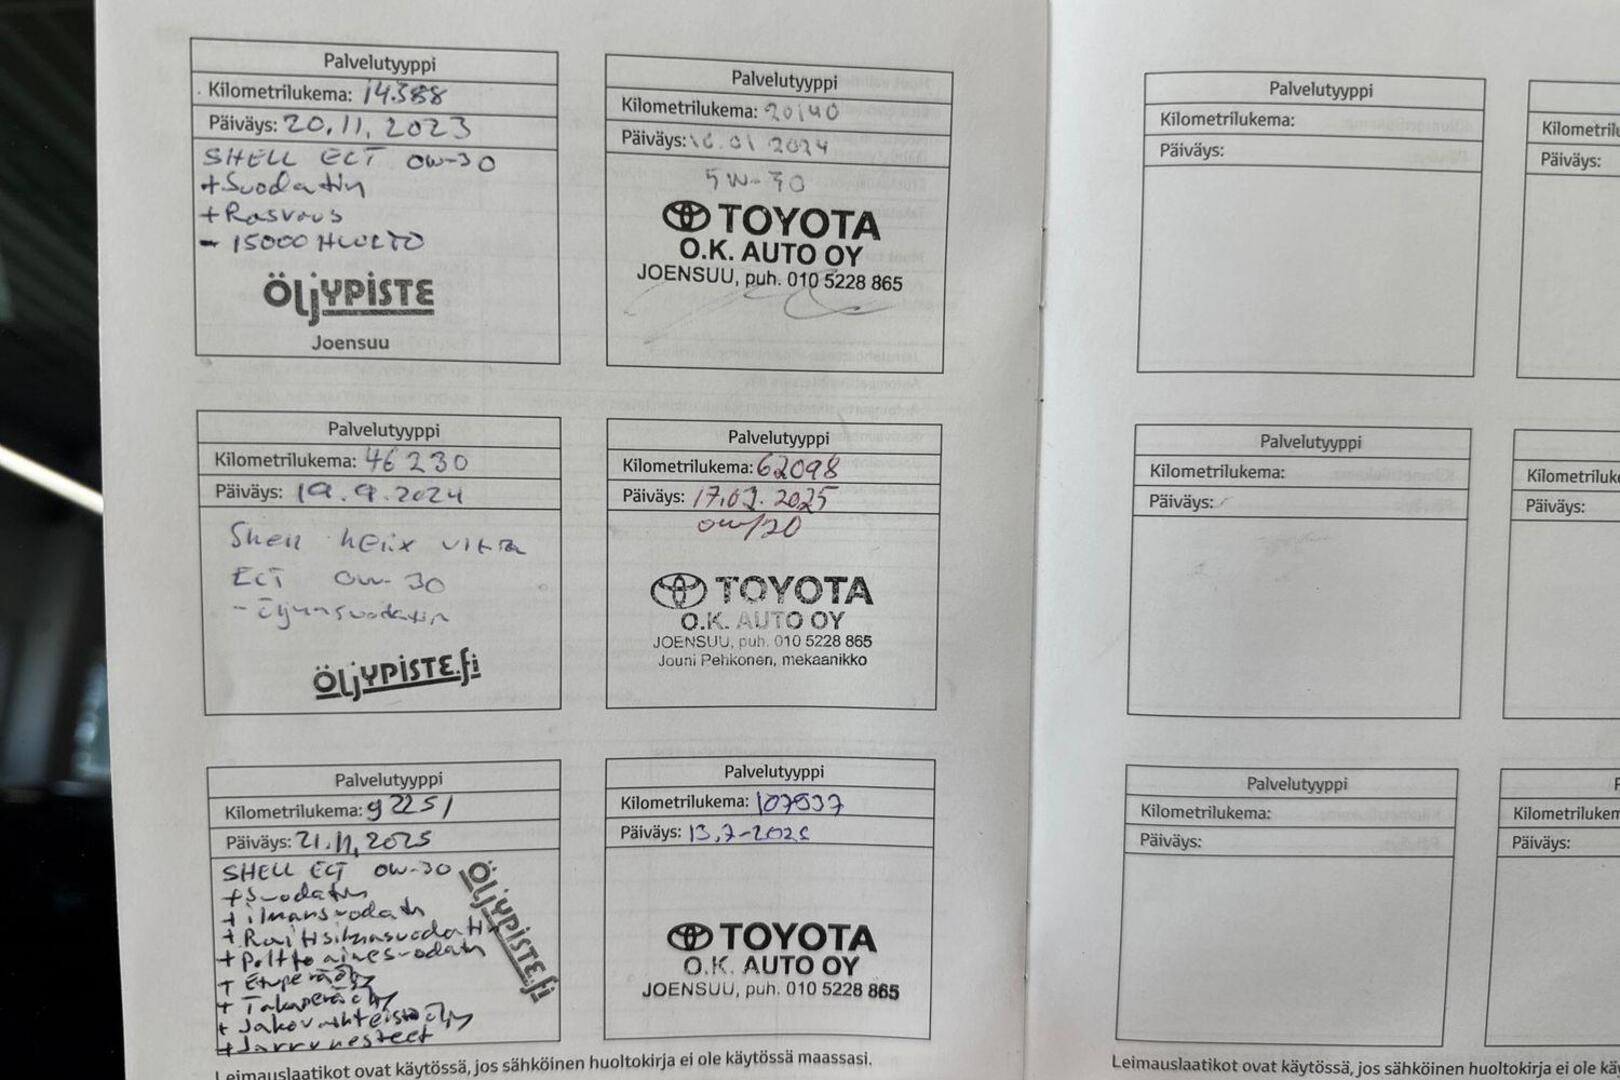 Palvelutyyppi
Kilometrilukema: 14.388
Päiväys: 20.11.2023
SHELL ECT 0W-30
+Suodatin
+Rasvaus
- 15000 HUOLTO
ÖLJYPISTE
Joensuu
Palvelutyyppi
Kilometrilukema: 20140
Päiväys: 16.01 2024
5W-30
TOYOTA
O.K. AUTO OY
JOENSUU, puh. 010 5228 865
Palvelutyyppi
Kilometrilukema: 46 230
Päiväys: 19.9.2024
Shell helix ultra
ECT 0W-30
- öljynsuodatin
ÖLJYPISTE.fi
Palvelutyyppi
Kilometrilukema: 62098
Päiväys: 17.02.2025
0W/20
TOYOTA
O.K. AUTO OY
JOENSUU, puh. 010 5228 865
Jouni Pehkonen, mekaanikko
Palvelutyyppi
Kilometrilukema: 92251
Päiväys: 21.11.2025
SHELL ECT 0W-30
+Suodatin
+ilmansuodatin
+Raitisilmasuodatin
+Polttoainesuodatin
+ Etuperäöljy
+ Takaperäöljy
+ Jakovaihteistoöljy
+Jarrunesteet
ÖLJYPISTE.fi
Palvelutyyppi
Kilometrilukema: 107537
Päiväys: 13.2-2026
TOYOTA
O.K. AUTO OY
JOENSUU, puh. 010 5228 865
Leimauslaatikot ovat käytössä, jos sähköinen huoltokirja ei ole käytössä maassasi.
Palvelutyyppi
Kilometrilukema:
Päiväys:
Kilometrilu
Päiväys:
Palvelutyyppi
Kilometrilukema:
Päiväys:
Kilometriluke
Päiväys:
Palvelutyyppi
Kilometrilukema:
Päiväys:
P
Kilometrilukem
Päiväys:
Leimauslaatikot ovat käytössä, jos sähköinen huoltokirja ei ole kä